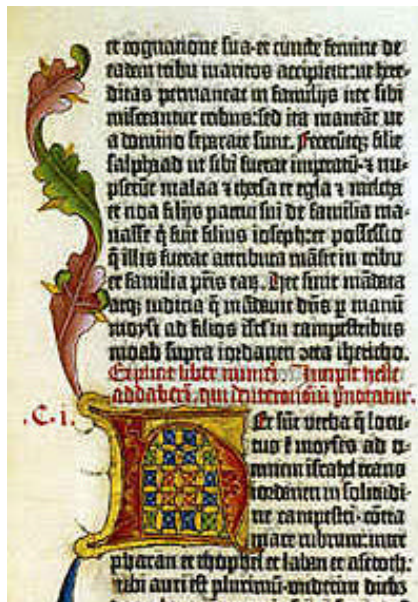 et cognatione sua· et cuncte femine de
eadem tribu maritos accipient: ut here-
ditas permaneat in familijs nec sibi
misceantur tribus: sed ita maneāt ut
a domino separate sunt. Feceruntqȝ filie
salphaad ut sibi fuerat imperatū· ⁊ nu-
pserūt maala ⁊ thersa et egla ⁊ melcha
et noa filijs patrui sui de familia ma-
nasse q̄ fuit filius ioseph: et possessio
q̄ illis fuerat attributa māsit in tribu
et familia pr̄is eaꝝ. Hec sunt mādata
atqȝ iudicia q̄ mādavit dn̄s p̱ manū
moysi ad filios isrl̄ in campestribus
moab supra iordanen ꝯtra ihericho.
Explicit liber numeri Incipit helle
addabarim, qui deuteronomiū p̄notatur.
.C. i.
Hec sūt verba q̄ locu-
tus ē moyses ad o-
mnem israhel trans
iordanen in solitudi-
ne campestri· cōtra
mare rubrum: inter
pharan et thophel et laban et aseroth:
ubi auri est plurimū· undecim diebus